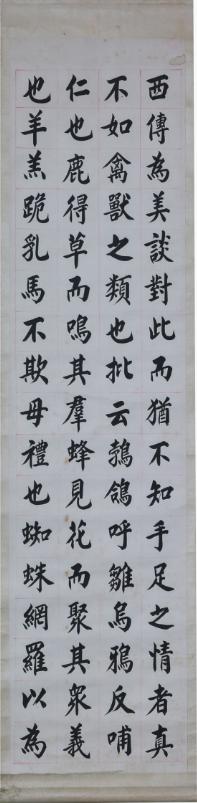 西傳為美談對此而猶不知手足之情者真
不如禽獸之類也批云鵓鴿呼雛烏鴉反哺
仁也鹿得草而鳴其羣蜂見花而聚其衆義
也羊羔跪乳馬不欺母禮也蜘蛛網羅以為